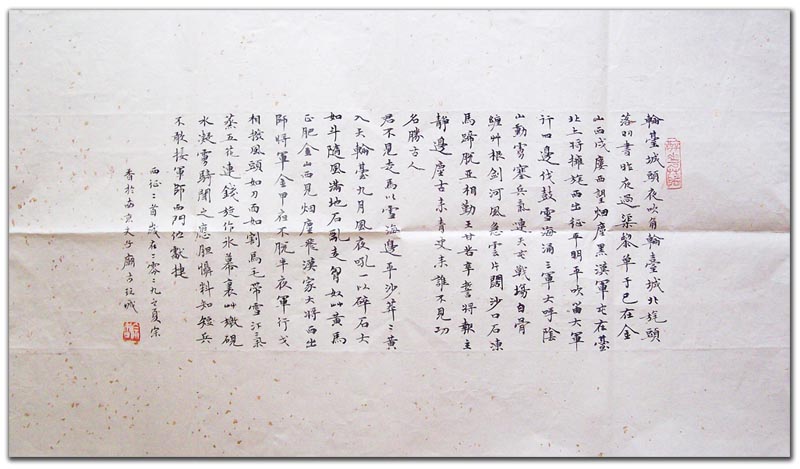 輪臺城頭夜吹角輪臺城北旄頭
落羽書昨夜過渠黎單于已在金
山西戍摟西望烟塵黑漢軍屯在臺
北上将擁旄西出征平明平吹笛大軍
行四邊伐鼓雪海涌三軍大呼陰
山動虜塞兵氣連天戰場白骨
纏艸根剣河風急雲片闊沙口石凍
馬蹄脫亞相勤王甘苦辛誓將報主
靜邊塵古来青史来誰不見功
名勝古人
君不見走馬以雪海邊平沙莽〻黄
入天輪臺九月風夜吼一以碎石大
如斗隨風滿地石亂走匈奴艸黄馬
正肥金山西見烟塵飛漢家大将西出
師将軍金甲夜不脫半夜軍行戈
相撥風頭如刀面如割馬毛帶雪汗氣
蒸五花連錢旋作氷幕裏艸檄硯
水凝虜騎聞之應胆懾料知短兵
不敢接軍師西門佇獻捷
西征二首歲在二零零九之夏宗
書於南京夫子廟古玩城